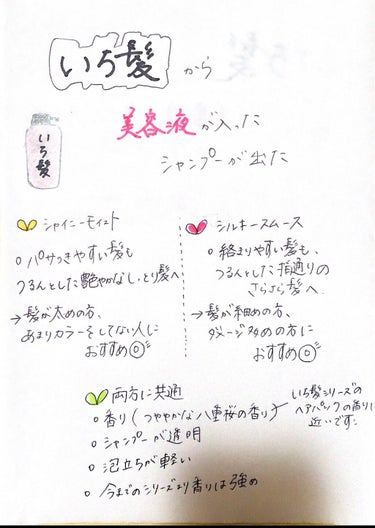 いち髪 から
美容液が入った
シャンプーが出た
いち髪
シャイニーモイスト
○ パサつきやすい髪も
つるんとした艶やかなしっとり髪へ
→ 髪が太めの方、
あまりカラーをしてない人に
おすすめ◎
シルキースムース
○ 絡まりやすい髪も、
つるんとした指通りの
さらさら髪へ
→ 髪が細めの方、
ダメージ多めの方に
おすすめ◎
両方に共通
○ 香り(つややかな八重桜の香り)
いち髪シリーズの
ヘアパックの香りに
近いです。
○ シャンプーが透明
○ 泡立ちが軽い
○ 今までのシリーズより香りは強め